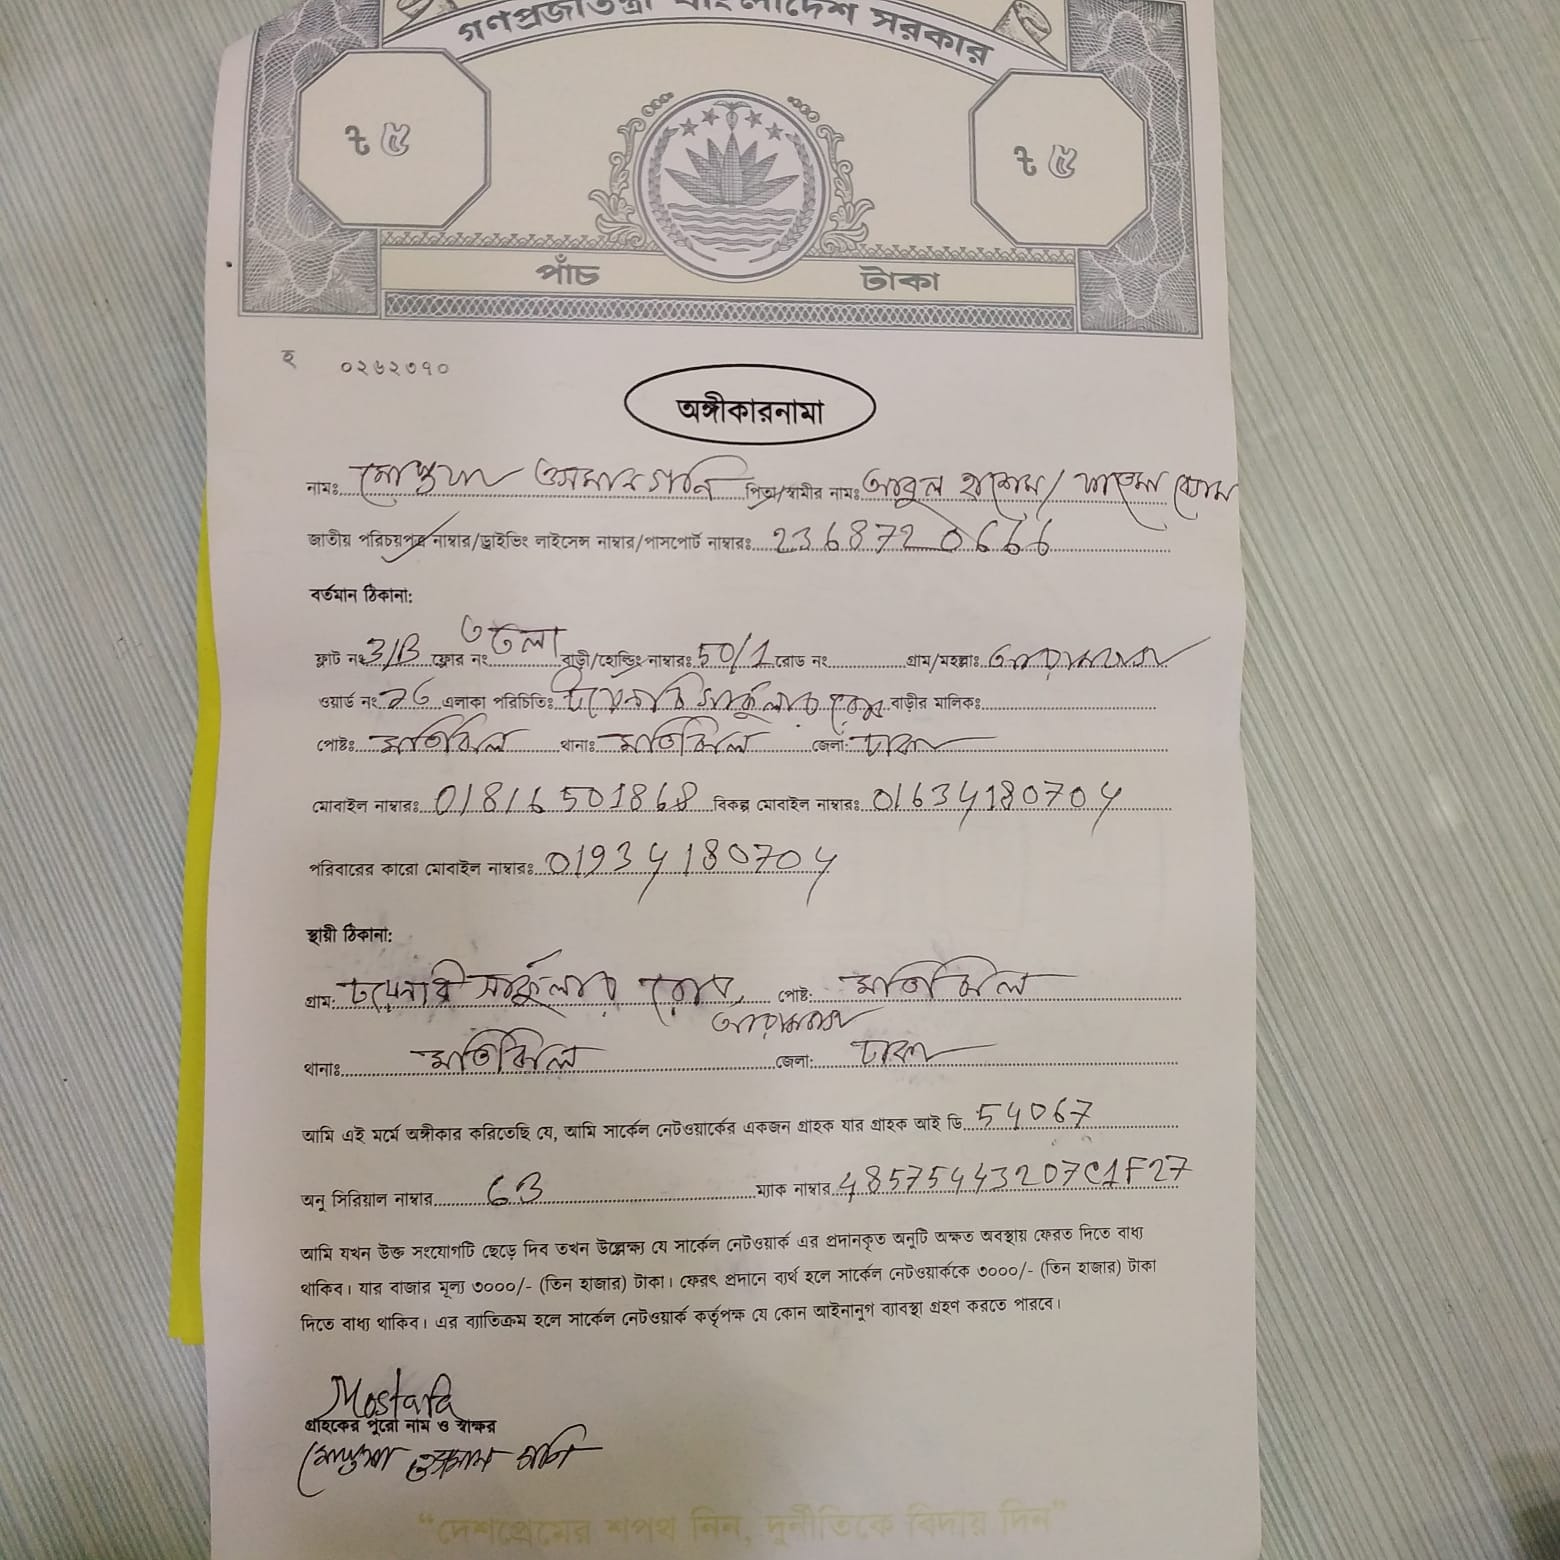 গণপ্রজাতন্ত্রী বাংলাদেশ সরকার
৳ ৫ ৳ ৫
পাঁচ টাকা
হ ০২৬২৩৭০
অঙ্গীকারনামা
নামঃ মোস্তফা ওসমান গনি পিতা/স্বামীর নামঃ আবুল হাশেম/ ফাতেমা বেগম
জাতীয় পরিচয়পত্র নাম্বার/ড্রাইভিং লাইসেন্স নাম্বার/পাসপোর্ট নাম্বারঃ 2368720666
বর্তমান ঠিকানা:
ফ্লাট নং 3/B ফ্লোর নং ৩ তলা বাড়ী/হোল্ডিং নাম্বারঃ 50/1 রোড নং গ্রাম/মহল্লাঃ আরামবাগ
ওয়ার্ড নং এলাকা পরিচিতিঃ সার্কুলার রোড বাড়ীর মালিকঃ
পোষ্টঃ মতিঝিল থানাঃ মতিঝিল জেলা: ঢাকা
মোবাইল নাম্বারঃ 01816501868 বিকল্প মোবাইল নাম্বারঃ 01634180704
পরিবারের কারো মোবাইল নাম্বারঃ 01934180704
স্থায়ী ঠিকানা:
গ্রাম: সার্কুলার রোড, আরামবাগ পোষ্ট: মতিঝিল
থানাঃ মতিঝিল জেলা: ঢাকা
আমি এই মর্মে অঙ্গীকার করিতেছি যে, আমি সার্কেল নেটওয়ার্কের একজন গ্রাহক যার গ্রাহক আই ডি 54067
অনু সিরিয়াল নাম্বার 63 ম্যাক নাম্বার 48575443207C1F27
আমি যখন উক্ত সংযোগটি ছেড়ে দিব তখন উল্লেক্ষ্য যে সার্কেল নেটওয়ার্ক এর প্রদানকৃত অনুটি অক্ষত অবস্থায় ফেরত দিতে বাধ্য
থাকিব। যার বাজার মূল্য ৩০০০/- (তিন হাজার) টাকা। ফেরৎ প্রদানে ব্যর্থ হলে সার্কেল নেটওয়ার্ককে ৩০০০/- (তিন হাজার) টাকা
দিতে বাধ্য থাকিব। এর ব্যাতিক্রম হলে সার্কেল নেটওয়ার্ক কর্তৃপক্ষ যে কোন আইনানুগ ব্যাবস্থা গ্রহণ করতে পারবে।
Mostafa
গ্রাহকের পুরো নাম ও স্বাক্ষর
মোস্তফা ওসমান গনি
“দেশপ্রেমের শপথ নিন, দুর্নীতিকে বিদায় দিন”